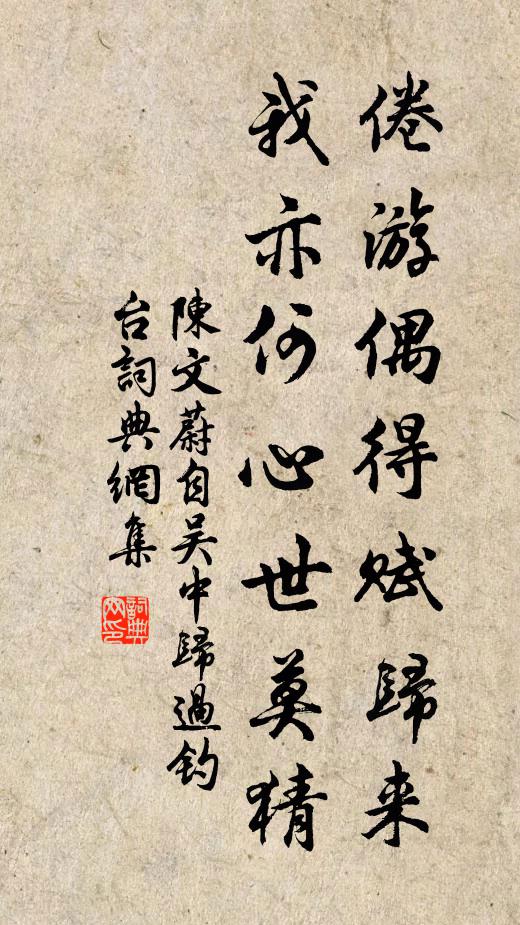 倦游偶得赋歸来
我亦何心世莫猜
陳文蔚自吴中歸過釣
台詞典網集
詞典网印